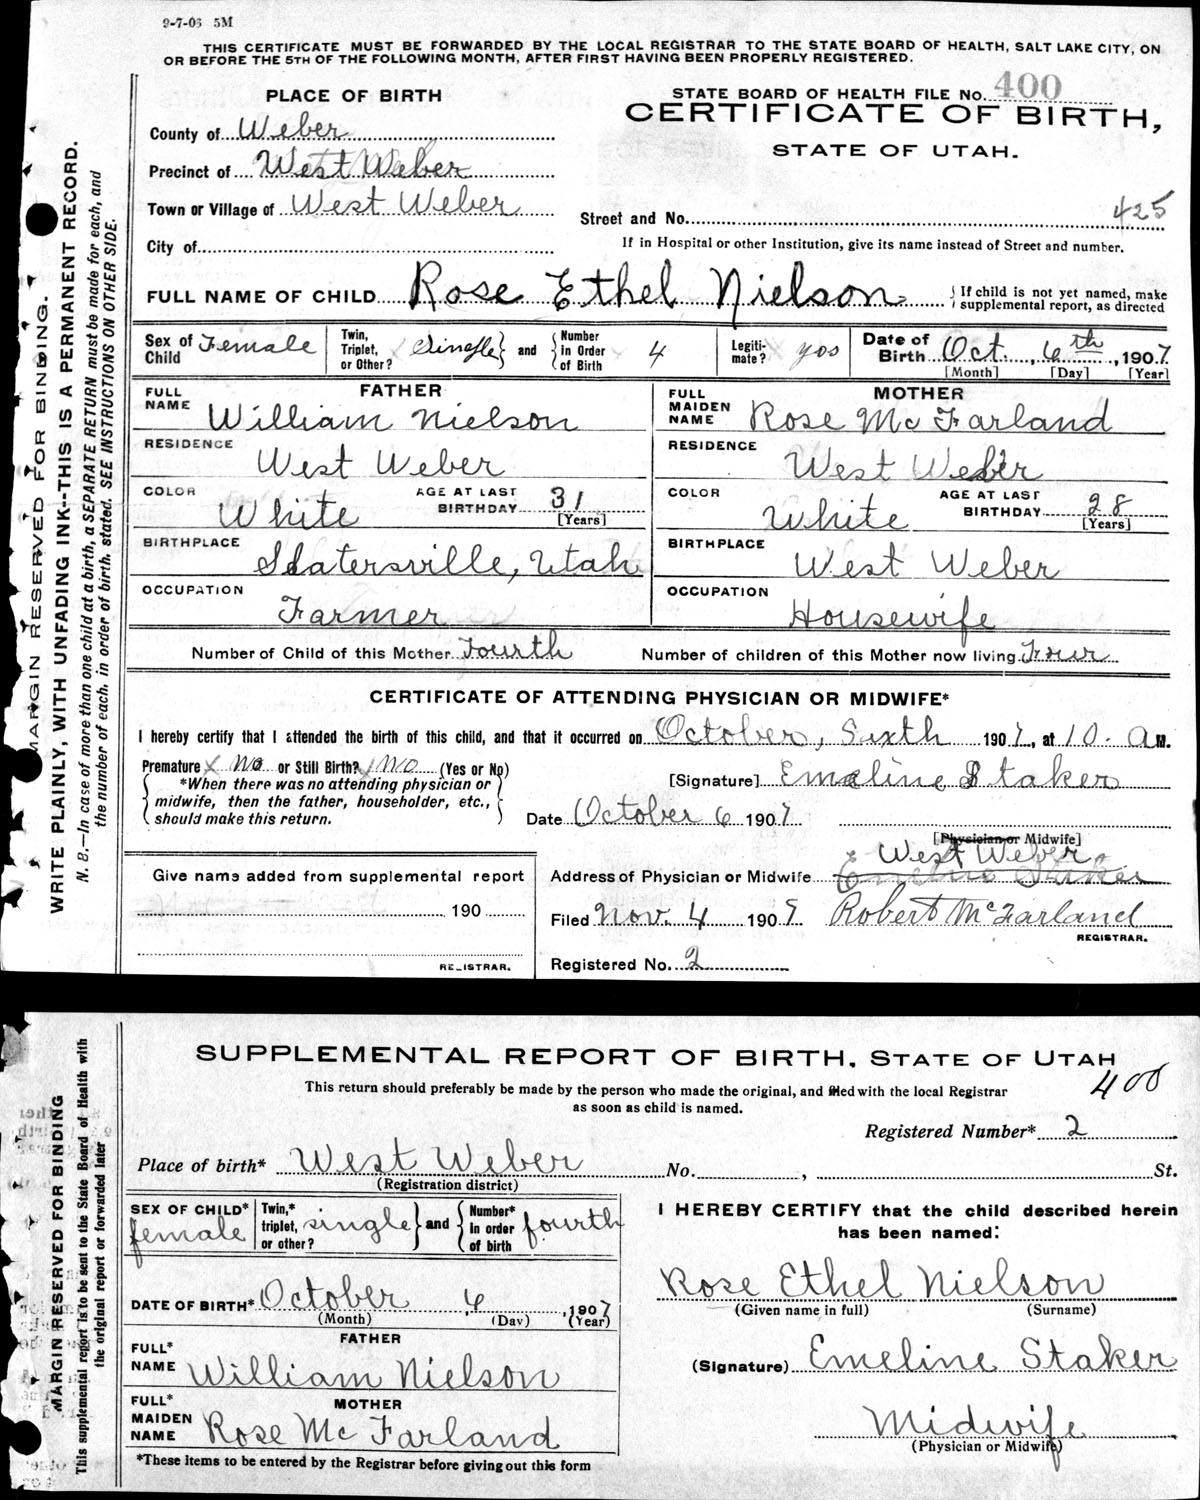 9-7-06 5M
THIS CERTIFICATE MUST BE FORWARDED BY THE LOCAL REGISTRAR TO THE STATE BOARD OF HEALTH, SALT LAKE CITY, ON
OR BEFORE THE 5TH OF THE FOLLOWING MONTH, AFTER FIRST HAVING BEEN PROPERLY REGISTERED.
MARGIN RESERVED FOR BINDING.
WRITE PLAINLY, WITH UNFADING INK--THIS IS A PERMANENT RECORD.
N. B.—In case of more than one child at a birth, a SEPARATE RETURN must be made for each, and
the number of each, in order of birth, stated. SEE INSTRUCTIONS ON OTHER SIDE.
PLACE OF BIRTH
STATE BOARD OF HEALTH FILE No. 400
CERTIFICATE OF BIRTH,
STATE OF UTAH.
County of Weber
Precinct of West Weber
Town or Village of West Weber
Street and No. 425
City of
If in Hospital or other Institution, give its name instead of Street and number.
FULL NAME OF CHILD Rose Ethel Nielson
{If child is not yet named, make
supplemental report, as directed
Sex of Child Female
Twin, Triplet, or Other? Single} and {Number in Order of Birth 4
Legitimate? yes
Date of Birth Oct. 6th, 1907
[Month] [Day] [Year]
FATHER
FULL NAME William Nielson
RESIDENCE West Weber
COLOR White AGE AT LAST BIRTHDAY 31 [Years]
BIRTHPLACE Slatersville, Utah
OCCUPATION Farmer
MOTHER
FULL MAIDEN NAME Rose McFarland
RESIDENCE West Weber
COLOR White AGE AT LAST BIRTHDAY 28 [Years]
BIRTHPLACE West Weber
OCCUPATION Housewife
Number of Child of this Mother Fourth Number of children of this Mother now living Four
CERTIFICATE OF ATTENDING PHYSICIAN OR MIDWIFE*
I hereby certify that I attended the birth of this child, and that it occurred on October, Sixth 1907, at 10. A M.
Premature No or Still Birth? No (Yes or No)
{*When there was no attending physician or
midwife, then the father, householder, etc.,
should make this return.}
[Signature] Emeline Staker
Date October 6 1907
[Physician or Midwife]
West Weber
Address of Physician or Midwife Emeline Staker
Give name added from supplemental report
190
REGISTRAR.
Filed Nov. 4 1907 Robert McFarland
REGISTRAR.
Registered No. 2
MARGIN RESERVED FOR BINDING
This supplemental report is to be sent to the State Board of Health with
the original report or forwarded later
SUPPLEMENTAL REPORT OF BIRTH, STATE OF UTAH
400
This return should preferably be made by the person who made the original, and filed with the local Registrar
as soon as child is named.
Registered Number* 2
Place of birth* West Weber No. , St.
(Registration district)
SEX OF CHILD* female
Twin,* triplet, or other? single} and {Number* in order of birth fourth
DATE OF BIRTH* October 6, 1907
(Month) (Day) (Year)
FATHER
FULL* NAME William Nielson
MOTHER
FULL* MAIDEN NAME Rose McFarland
*These items to be entered by the Registrar before giving out this form
I HEREBY CERTIFY that the child described herein
has been named:
Rose Ethel Nielson
(Given name in full) (Surname)
(Signature) Emeline Staker
Midwife
(Physician or Midwife)